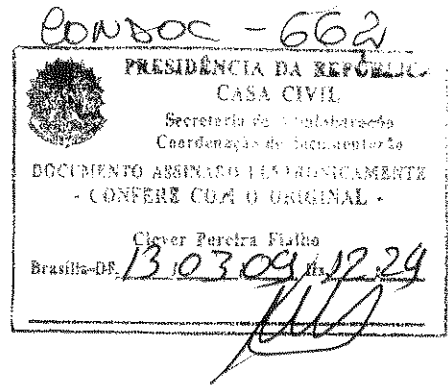 CONDOC - 662
PRESIDÊNCIA DA REPÚBLICA
CASA CIVIL
Secretaria de Administração
Coordenação de Documentação
DOCUMENTO ASSINADO ELETRONICAMENTE
- CONFERE COM O ORIGINAL -
Clever Pereira Fialho
Brasília-DF. 13/03/09 Hs 12:29